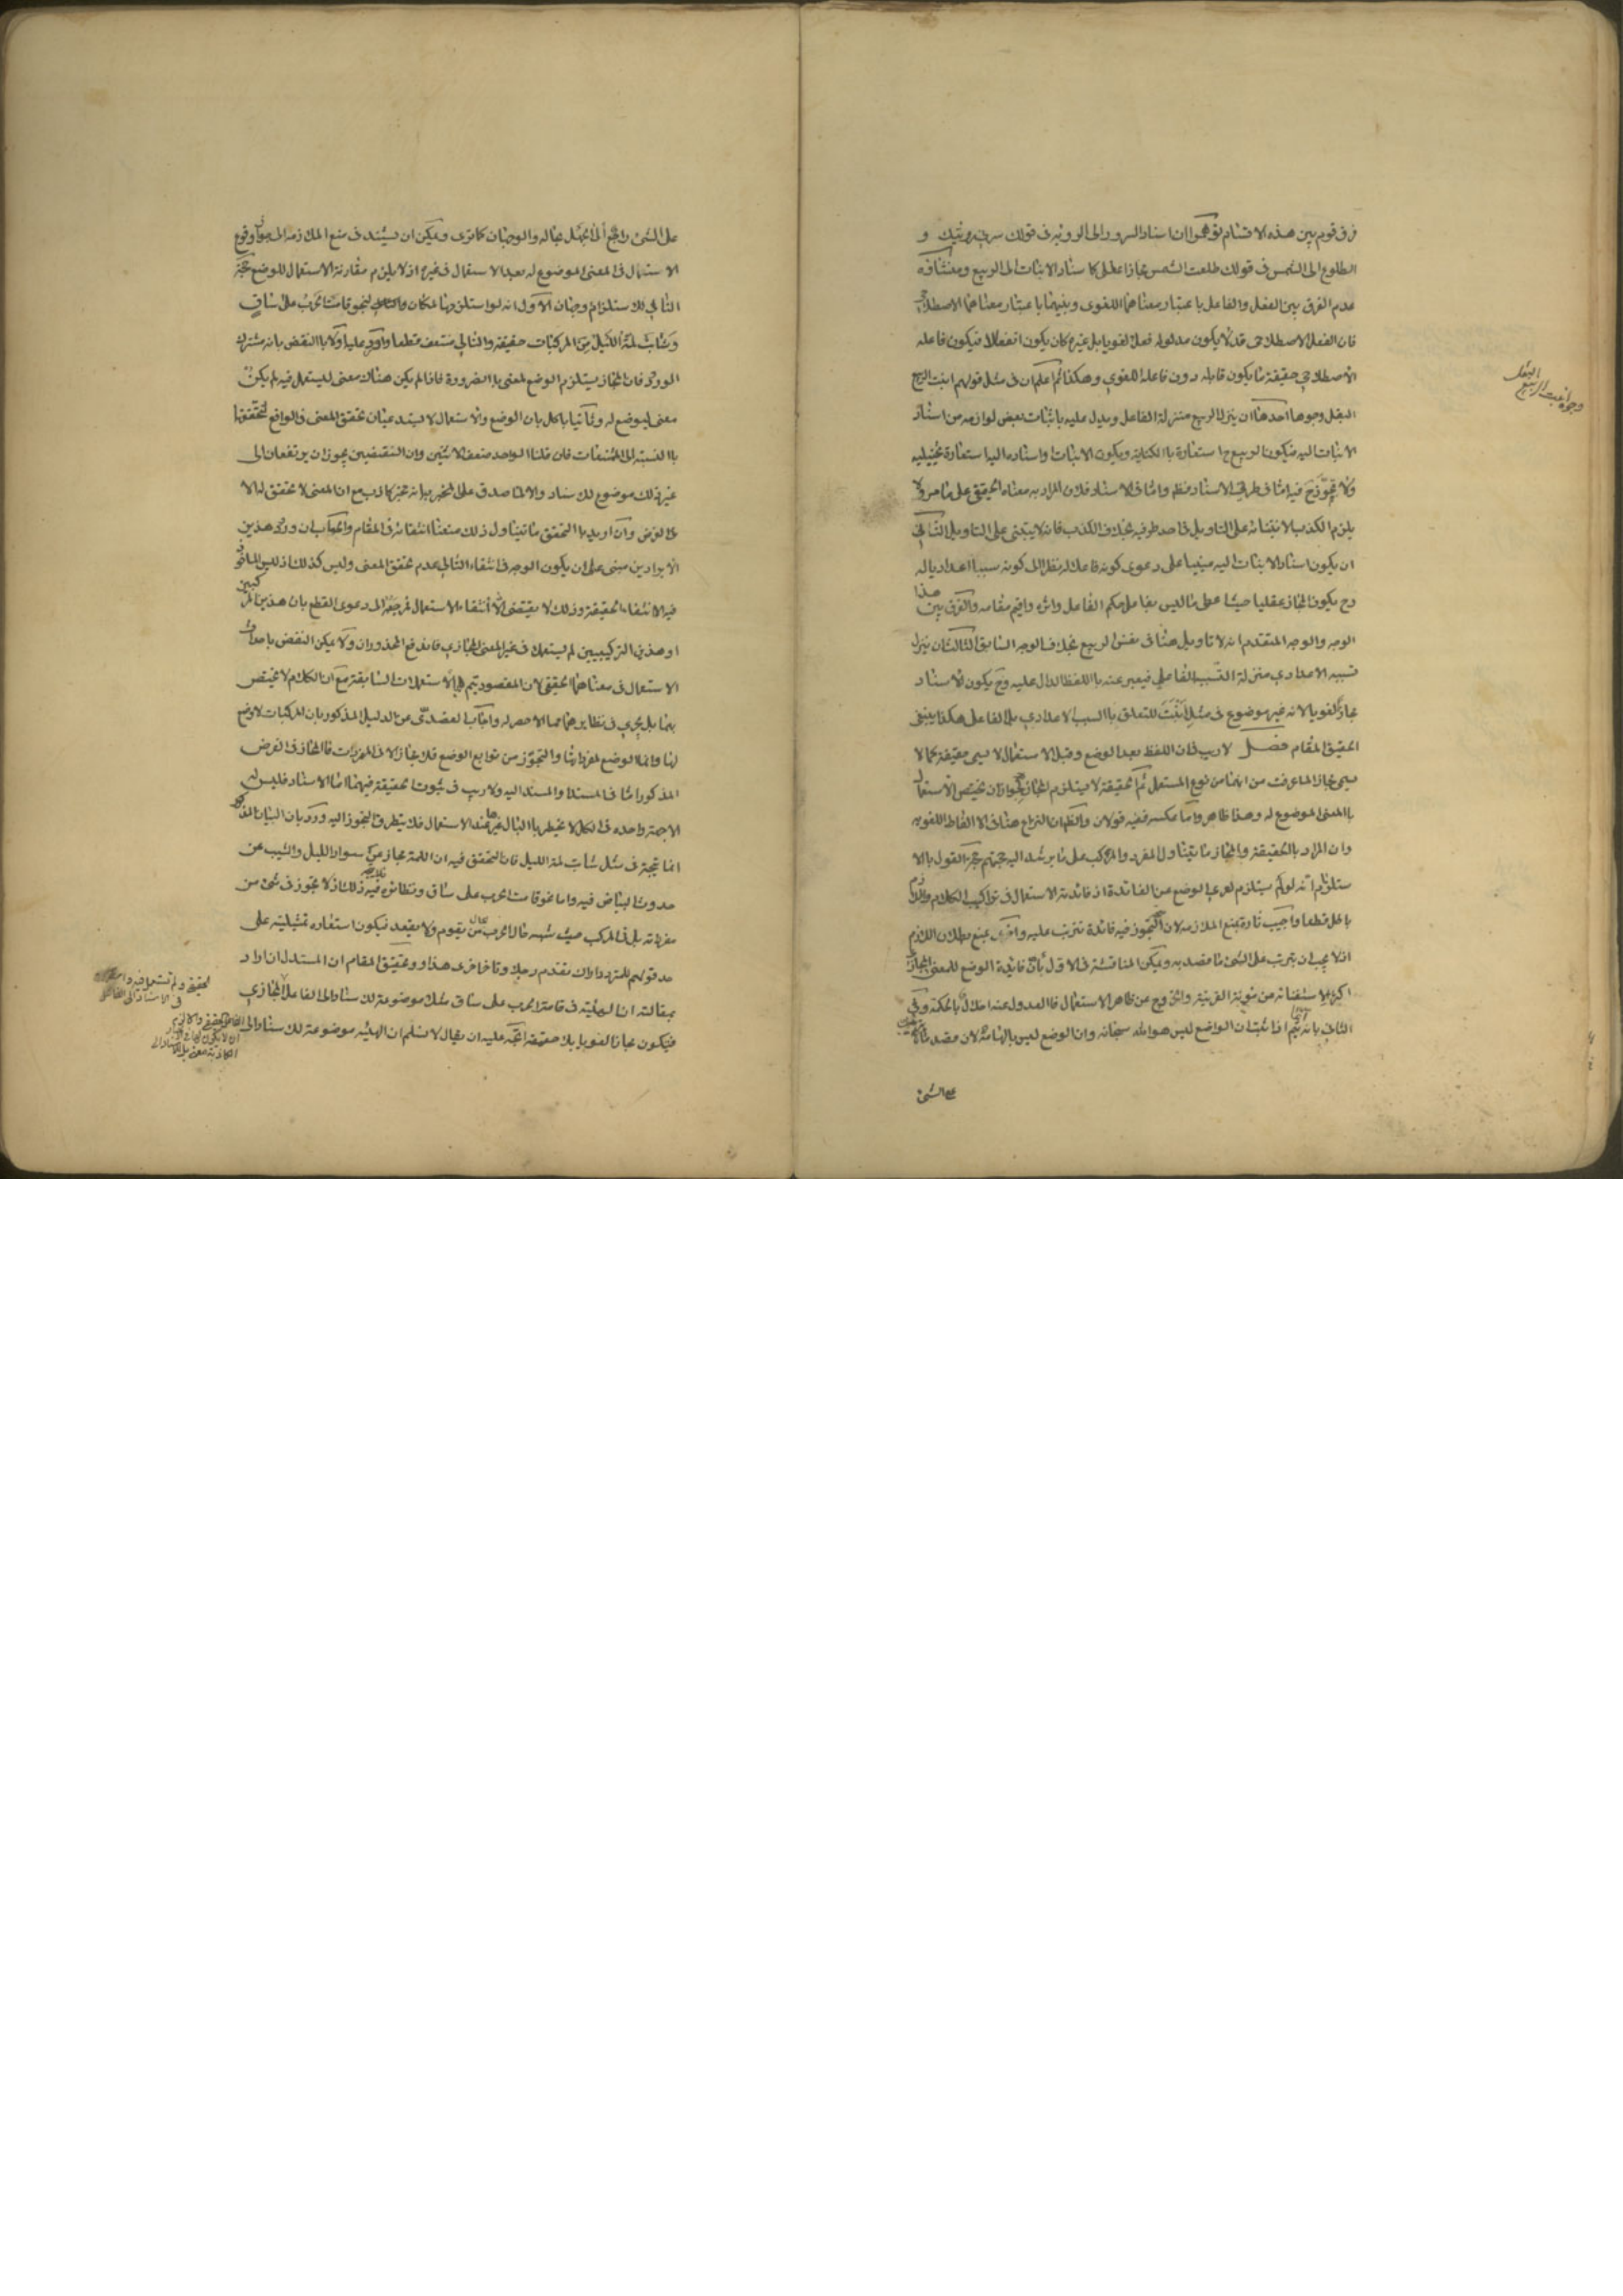 فرق قوم بين هذه الاقسام توهموا ان اسناد السرور الى الروية فى قولك سرتنى رؤيتك و
الطلوع الى الشمس فى قولك طلعت الشمس مجاز عقلى كاسناد الانبات الى الربيع ومنشاؤه
عدم الفرق بين الفعل والفاعل باعتبار معناهما اللغوى وبينهما باعتبار معناهما الاصطلاحى
فان الفعل الاصطلاحى قد لا يكون مدلوله فعلا لغويا بل غيره كان يكون انفعالا فيكون فاعله
الاصطلاحي حقيقة ما يكون قابله دون فاعله اللغوي وهكذا ثم اعلم ان فى مثل قولهم انبت الربيع
البقل وجوها احدها ان ينزل الربيع منزلة الفاعل ويدل عليه باثبات بعض لوازمه من اسناد
الانبات اليه فيكون الربيع ح استعارة بالكناية ويكون الانبات او اسناده اليه استعارة تخييلية
ولا تجوز ح فيه اما فى طرفي الاسناد فظ واما فى الاسناد فلان المراد به معناه الحقيقى على ما مر ولا
يلزم الكذب لابتنائه على التاويل فى احد طرفيه بخلاف الكذب فانه لا يبتنى على التاويل الثاني
ان يكون اسناد الانبات اليه مبنيا على دعوى كونه فاعلا له نظرا الى كونه سببا اعداديا له
وح يكون المجاز عقليا حيث اعطى ما ليس بفاعل حكم الفاعل واثره واقيم مقامه والفرق بين هذا
الوجه والوجه المتقدم انه لا تاويل هنا فى نفس الربيع بخلاف الوجه السابق الثالث ان ينزل
تسببه الاعدادي منزلة التسبب الفاعلي فيعبر عنه باللفظ الدال عليه وح يكون الاسناد
مجازا لغويا لانه غير موضوع فى مثل انبت للتعلق بالسبب الاعدادي بل الفاعل هكذا ينبغى
تحقيق المقام فصل لا ريب فى ان اللفظ بعد الوضع وقبل الاستعمال لا يسمى حقيقة كما لا
يسمى مجازا لما عرفت من انهما من نوع المستعمل ثم الحقيقة لا يستلزم المجاز لجواز ان يختص الاستعمال
بالمعنى الموضوع له وهذا ظاهر واما عكسه ففيه قولان والظ ان النزاع هنا فى الالفاظ اللغوية
وان المراد بالحقيقة والمجاز ما يتناول المفرد والمركب على ما يرشد اليه حجتهم حجة القول بالا
ستلزام انه لو لم يستلزم لعرى الوضع عن الفائدة اذ فائدته الاستعمال فى تراكيب الكلام واللازم
باطل قطعا واجيب تارة بمنع الملازمة لان التجوز فيه فائدة تترتب عليه واخرى بمنع بطلان اللازم
اذ لا يجب ان يترتب على الشئ ما قصد به ويمكن المناقشة فى الاول بان فائدة الوضع للمعنى المجازى
اكثر لاستغنائه من مؤنة القرينة والخروج عن ظاهر الاستعمال فالعدول عنه اخلال بالحكمة وفي
الثاني بانه انما يتم اذا ثبت ان الواضع ليس هو الله سبحانه وان الوضع ليس بالهامه لان قصد
على الشئ
وجوه انبت الربيع البقل
على الشئ راجع الى الجهل بحاله والوجهان كما ترى ويمكن ان يستند فى منع الملازمة الى جواز وقوع
الاستعمال فى المعنى الموضوع له بعد الاستعمال فى غيره اذ لا يلزم مقارنة الاستعمال للوضع حجة
الثاني لك ستلزام وجهان الاول انه لو استلزمها لكان لنحو قامت الحرب على ساق
وشابت لمة الليل من المركبات حقيقة والثاني منتف قطعا واورد عليه اولا بالنقض بانه مشترك
الورود فان المجاز يستلزم الوضع لمعنى بالضرورة فاذا لم يكن هناك معنى ليستعمل فيه لم يكن
معنى ليوضع له وثانيا بالحل بان الوضع والاستعمال لا يستدعيان تحقق المعنى فى الواقع لتحققهما
بالنسبة الى الممتنعات فان قلنا الواحد ضعف الاثنين وان النقيضين يجوز ان يرتفعا الى
غير ذلك موضوع للاسناد والا لما صدق على المخبر به انه مخبر كاذب مع ان المعنى لا تحقق له الا
بالفرض وان اريد بالتحقق ما يتناول ذلك منعنا انتفائه فى المقام والجواب ان ورود هذين
الايرادين مبنى على ان يكون الوجه فى انتفاء الثاني عدم تحقق المعنى وليس كذلك اذ ليس الماخوذ
فيه الا انتفاء الحقيقة وذلك لا يقتضى الا انتفاء الاستعمال فمرجعه الى دعوى القطع بان هذين المركبين
او هذين التركيبين لم يستعملا فى غير المعنى المجازي فاندفع المحذوران ولا يمكن النقض باحداث
الاستعمال فى معناهما الحقيقى لان المقصود يتم بالاستعمالات السابقة مع ان الكلام لا يختص
بهما بل يجري فى نظايرهما مما لا حصر له واجاب العضدى عن الدليل المذكور بان المركبات لا وضع
لها وانما الوضع لمفرداتها والتجوز من توابع الوضع فلا مجاز الا فى المفردات فالمجاز فى الفرض
المذكور اما فى المسند او المسند اليه ولا ريب فى ثبوت الحقيقة فيهما اما الاسناد فليس له
الا جهة واحدة فى الكل لا يخطر بالبال غيرها عند الاستعمال فلا يتطرق التجوز اليه ورد بان البيان المذكور
انما يتجه فى مثل شابت لمة الليل فان التحقق فيه ان اللمة مجاز عن سواد الليل والشيب عن
حدوث البياض فيه واما نحو قامت الحرب على ساق ونظائره فلا يتم فيه ذلك اذ لا تجوز فى شئ من
مفرداته بل فى المركب حيث شبه حال الحرب بحال من يقوم ولا يقعد فيكون استعارة تمثيلية على
حد قولهم للمتردد اراك تقدم رجلا وتاخر اخرى هذا وتحقيق المقام ان المستدل ان اراد
بمقالته ان الهيئة فى قامت الحرب على ساق مثلا موضوعة للاسناد الى الفاعل المجازي
فيكون مجازا لغويا بلا حقيقة اتجه عليه ان يقال لا نسلم ان الهيئة موضوعة للاسناد الى الفاعل